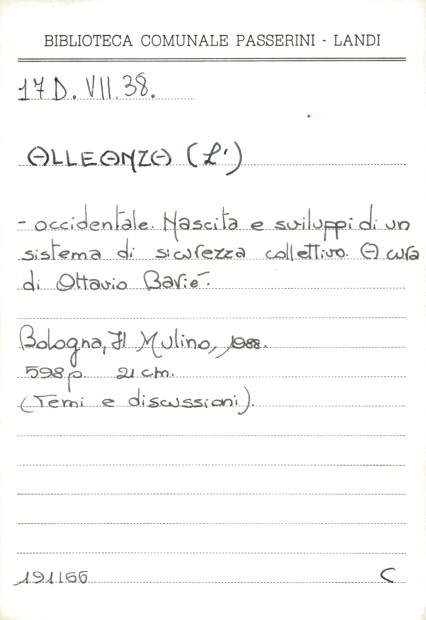 BIBLIOTECA COMUNALE PASSERINI - LANDI
17 D. VII. 38.
ALLEANZA (L')
- occidentale. Nascita e sviluppi di un
sistema di sicurezza collettivo. A cura
di Ottavio Barié.
Bologna, Il Mulino, 1988.
598 p. 21 cm.
(Temi e discussioni).
191166 C